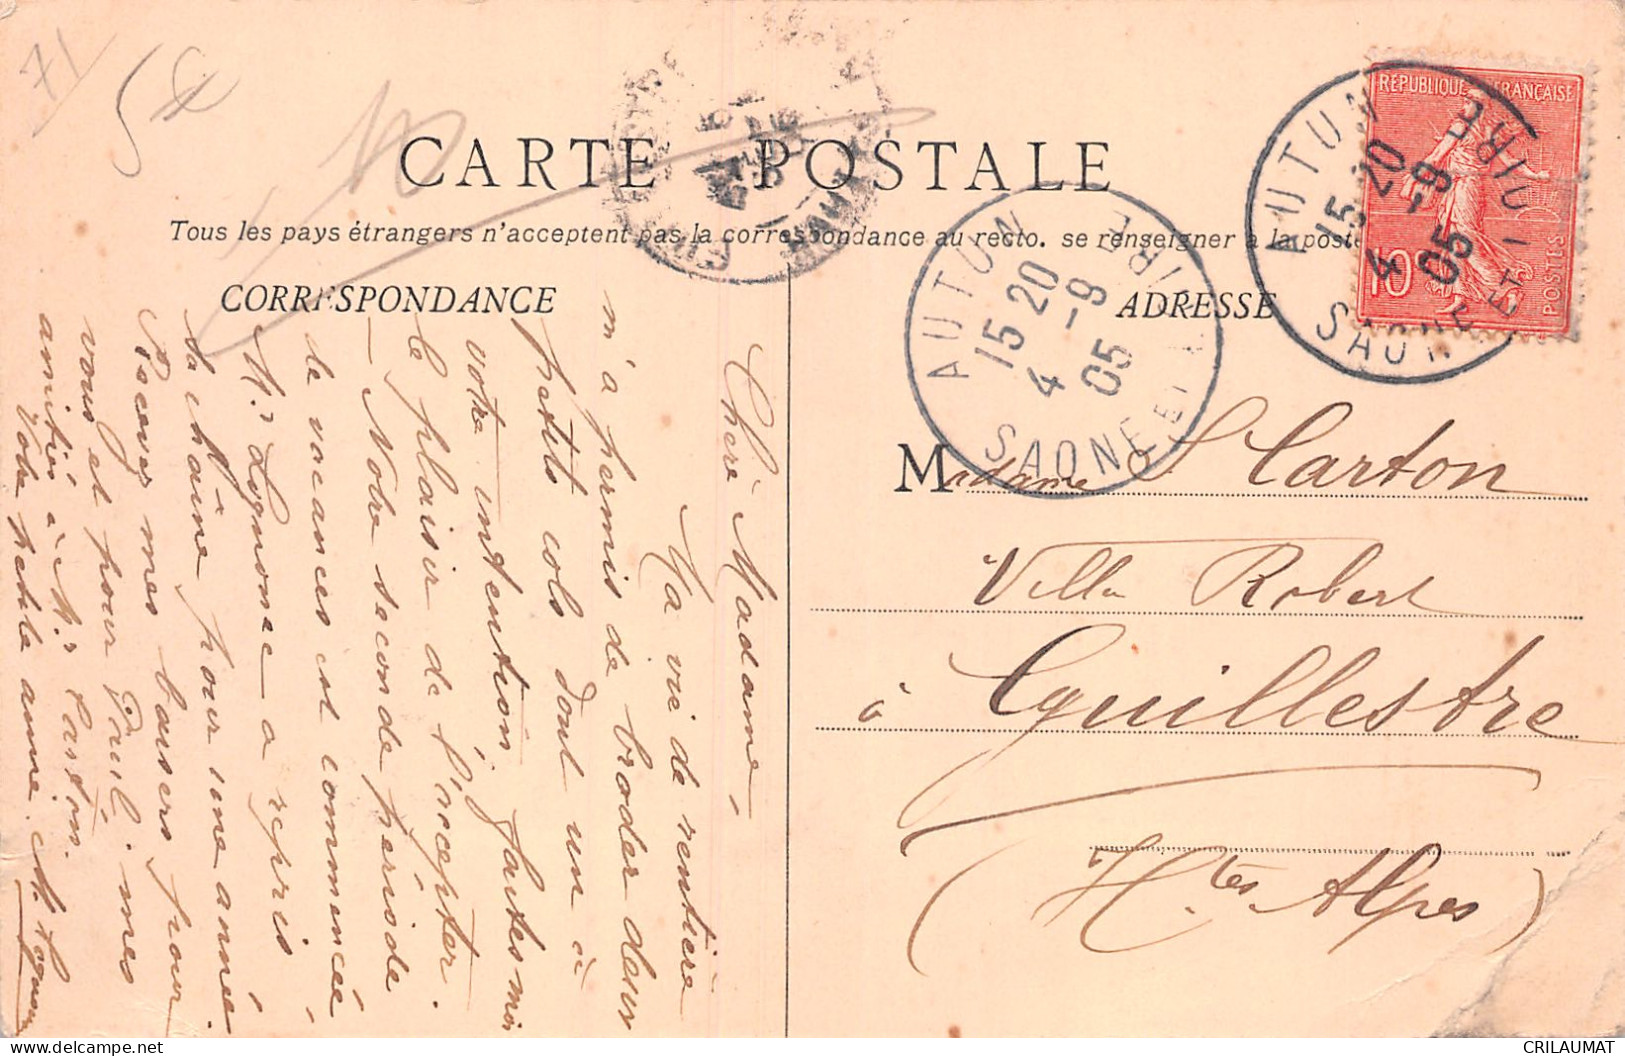 71
5€
CARTE POSTALE
Tous les pays étrangers n'acceptent pas la correspondance au recto. se renseigner à la poste
CORRESPONDANCE
ADRESSE
RÉPUBLIQUE FRANÇAISE
10
POSTES
AUTUN
15 20
4 -9
05
SAONE ET LOIRE
AUTUN
15 20
4 -9
05
SAONE ET LOIRE
Madame Carton
Villa Robert
à Guillestre
(Htes Alpes)
Chère Madame,
Ma vie de rentière
m'a permis de broder deux
petits cols dont un à
votre intention, faites-moi
le plaisir de l'accepter.
– Notre seconde période
de vacances est commencée
Mr Lognone a repris
sa chaîne pour une année.
Recevez mes baisers pour
vous et pour Paul, mes
amitiés à Mr Carton.
Votre petite amie. M. Lognone
CRILAUMAT